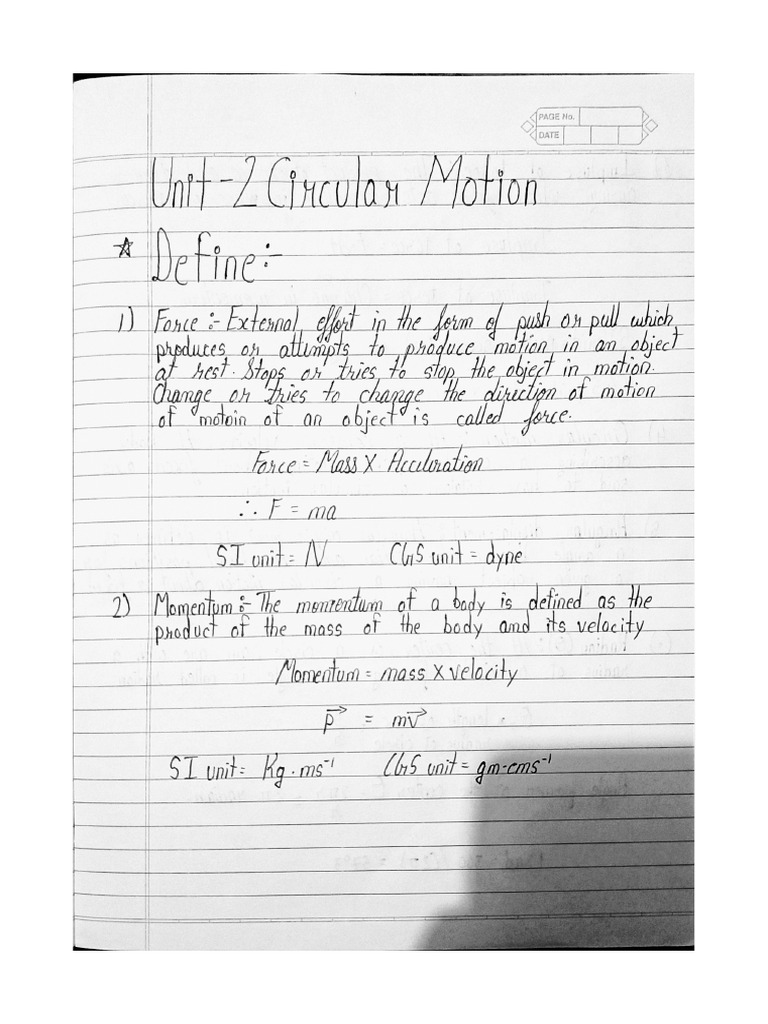 PAGE No.
DATE
Unit-2 Circular Motion
☆ Define:-
1) Force:- External effort in the form of push or pull which
produces or attimpts to produce motion in an object
at rest. Stops or tries to stop the object in motion.
Change or tries to change the direction of motion
of motoin of an object is called force.
Force = Mass X Acceleration
∴ F = ma
SI unit = N CGS unit = dyne
2) Momentum:- The momentum of a body is defined as the
product of the mass of the body and its velocity
Momentum = mass X velocity
p⃗ = mv⃗
SI unit= Kg·ms⁻¹ CGS unit= gm-cms⁻¹